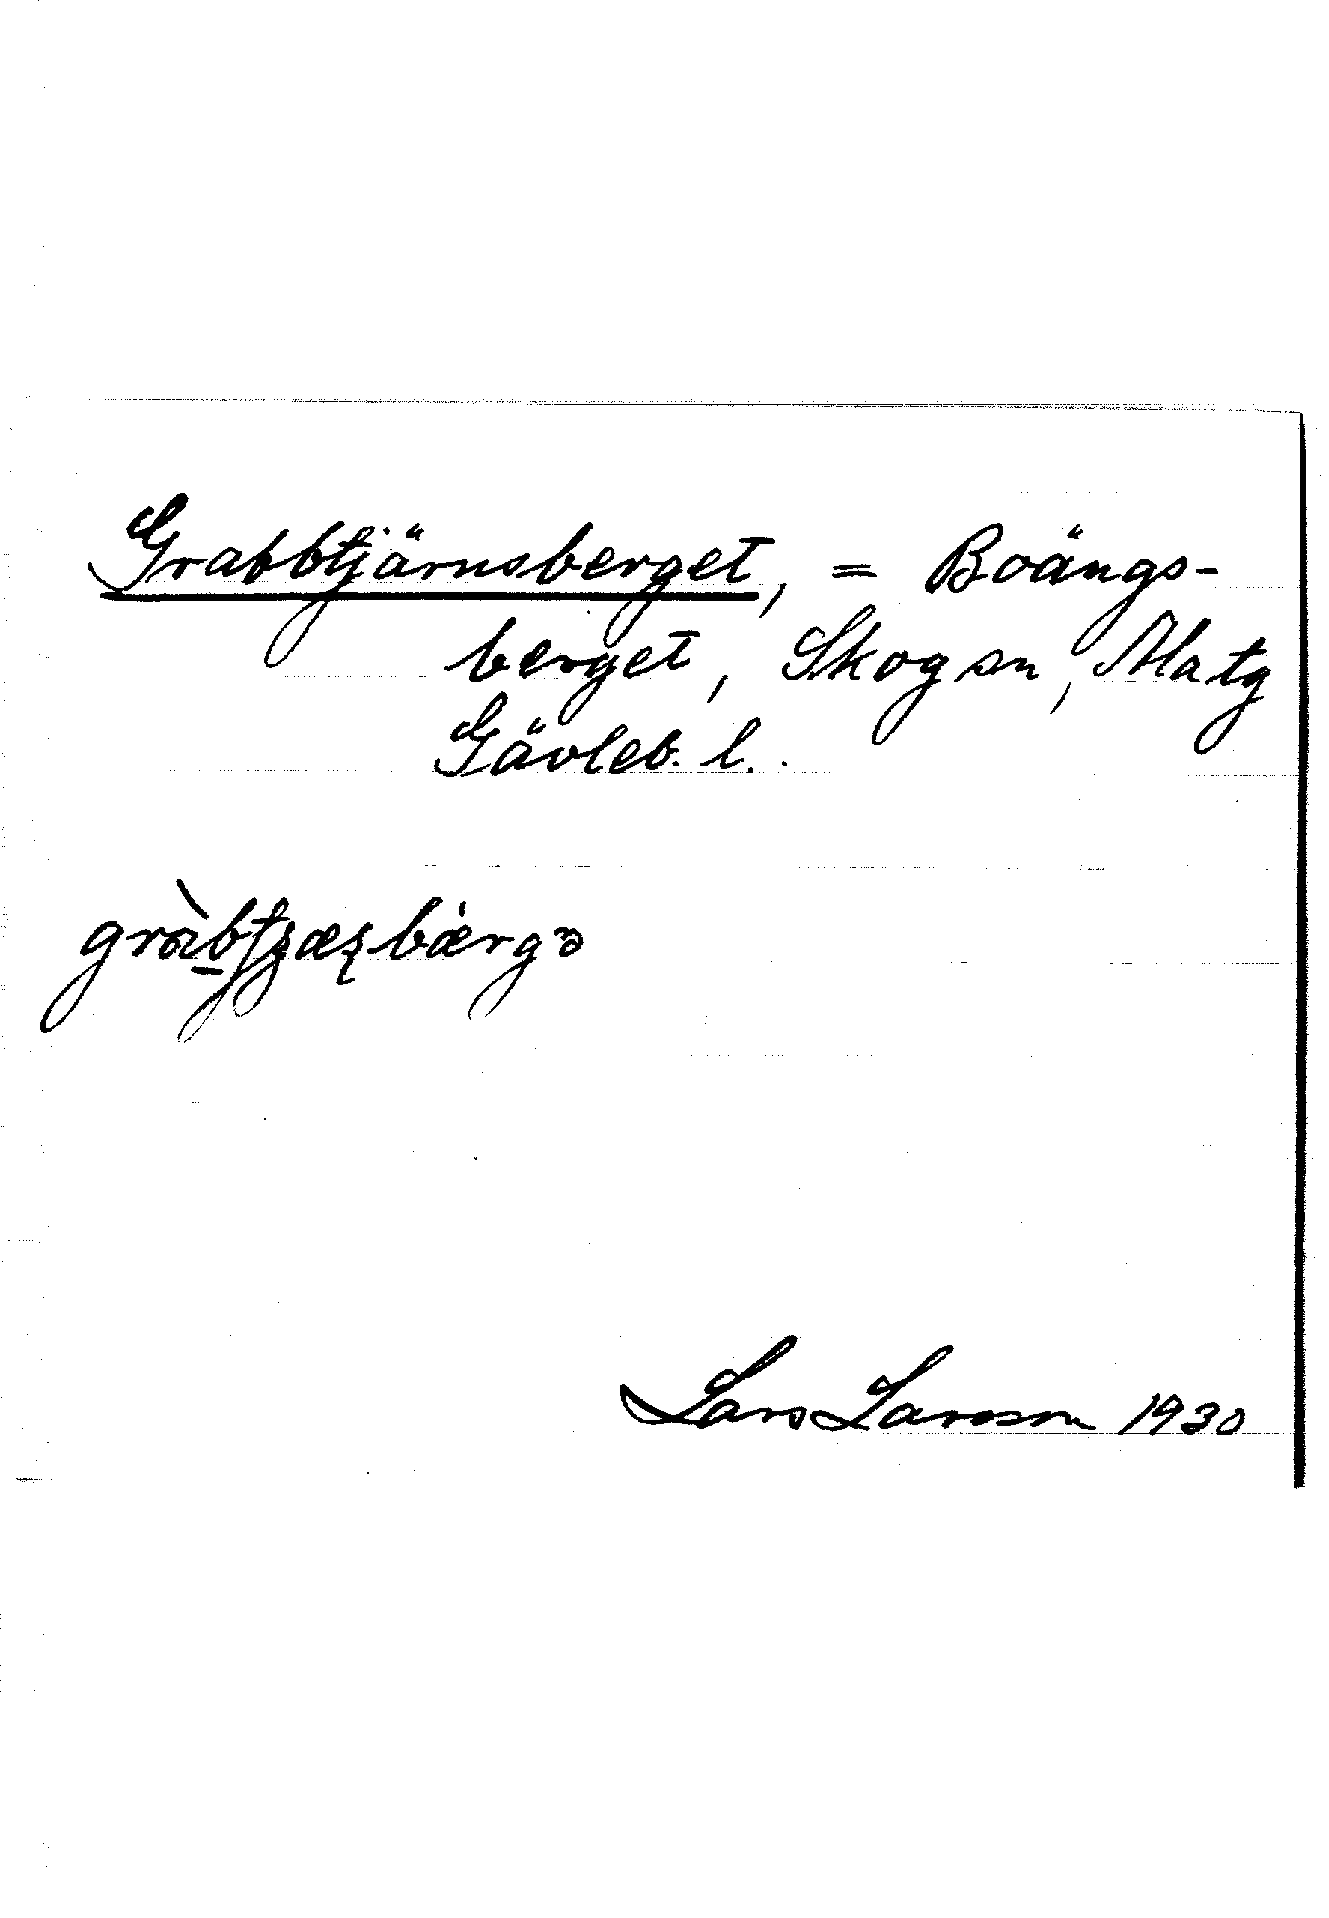 Grabbtjärnsberget, = Boängs-
berget, Skog sn, Matg
Gävleb. l.
Lars Larsson 1930